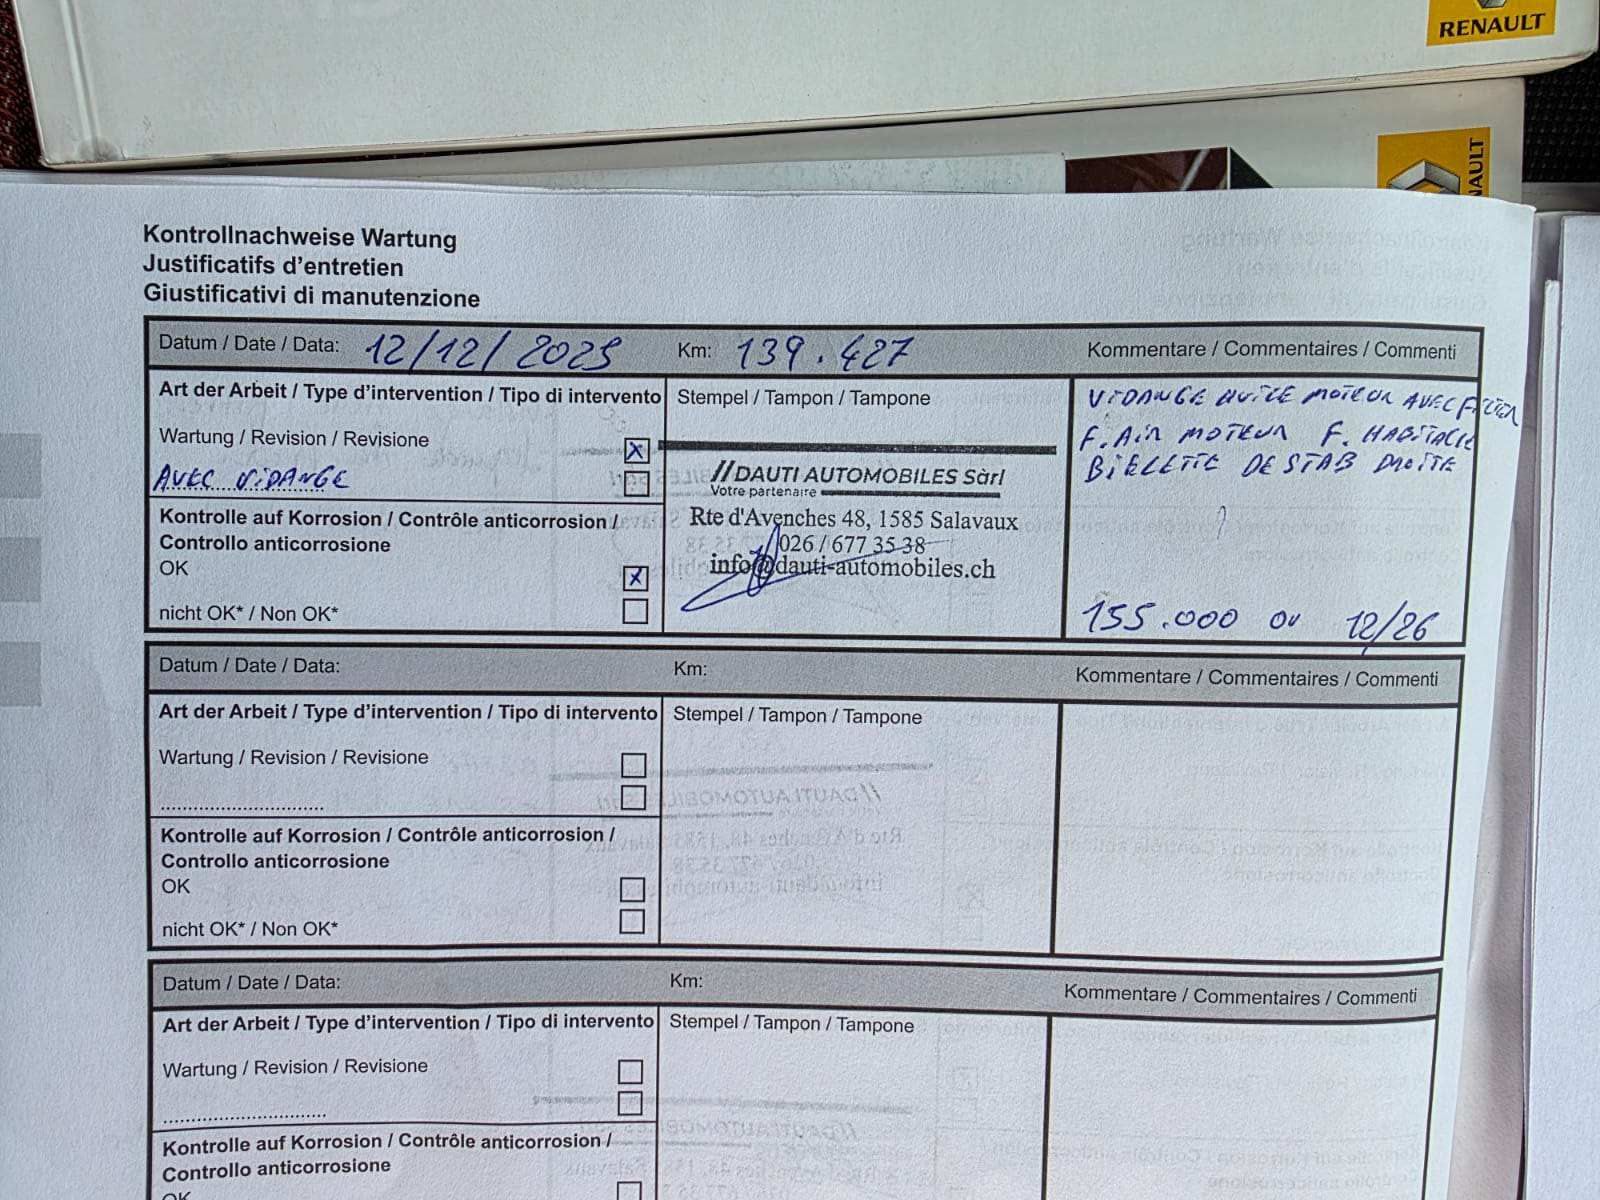 RENAULT
RENAULT
Kontrollnachweise Wartung
Justificatifs d'entretien
Giustificativi di manutenzione
Datum / Date / Data: 12/12/2025 Km: 139.427 Kommentare / Commentaires / Commenti
Art der Arbeit / Type d'intervention / Tipo di intervento
Stempel / Tampon / Tampone
VIDANGE HUILE MOTEUR AVEC FILTER
F. AIR MOTEUR F. HABITACLE
BIELETTE DE STAB DROITE
Wartung / Revision / Revisione
AVEC VIDANGE
//DAUTI AUTOMOBILES Sàrl
Votre partenaire
Rte d'Avenches 48, 1585 Salavaux
026 / 677 35 38
info@dauti-automobiles.ch
Kontrolle auf Korrosion / Contrôle anticorrosion /
Controllo anticorrosione
OK
nicht OK* / Non OK*
155.000 ou 12/26
Datum / Date / Data: Km: Kommentare / Commentaires / Commenti
Art der Arbeit / Type d'intervention / Tipo di intervento
Stempel / Tampon / Tampone
Wartung / Revision / Revisione
Kontrolle auf Korrosion / Contrôle anticorrosion /
Controllo anticorrosione
OK
nicht OK* / Non OK*
Datum / Date / Data: Km: Kommentare / Commentaires / Commenti
Art der Arbeit / Type d'intervention / Tipo di intervento
Stempel / Tampon / Tampone
Wartung / Revision / Revisione
Kontrolle auf Korrosion / Contrôle anticorrosion /
Controllo anticorrosione
OK